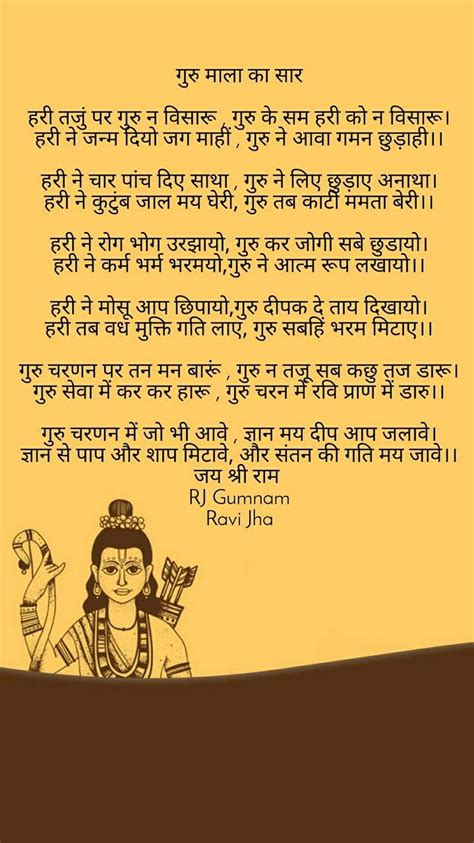 गुरु माला का सार
हरी तजुं पर गुरु न विसारू , गुरु के सम हरी को न विसारू।
हरी ने जन्म दियो जग माहीं , गुरु ने आवा गमन छुड़ाही।।
हरी ने चार पांच दिए साथा , गुरु ने लिए छुड़ाए अनाथा।
हरी ने कुटुंब जाल मय घेरी, गुरु तब काटी ममता बेरी।।
हरी ने रोग भोग उरझायो, गुरु कर जोगी सबे छुडायो।
हरी ने कर्म भर्म भरमयो,गुरु ने आत्म रूप लखायो।।
हरी ने मोसू आप छिपायो,गुरु दीपक दे ताय दिखायो।
हरी तब वध मुक्ति गति लाए, गुरु सबहिं भरम मिटाए।।
गुरु चरणन पर तन मन बारूं , गुरु न तजू सब कछु तज डारू।
गुरु सेवा में कर कर हारू , गुरु चरन में रवि प्राण में डारु।।
गुरु चरणन में जो भी आवे , ज्ञान मय दीप आप जलावे।
ज्ञान से पाप और शाप मिटावे, और संतन की गति मय जावे।।
जय श्री राम
RJ Gumnam
Ravi Jha